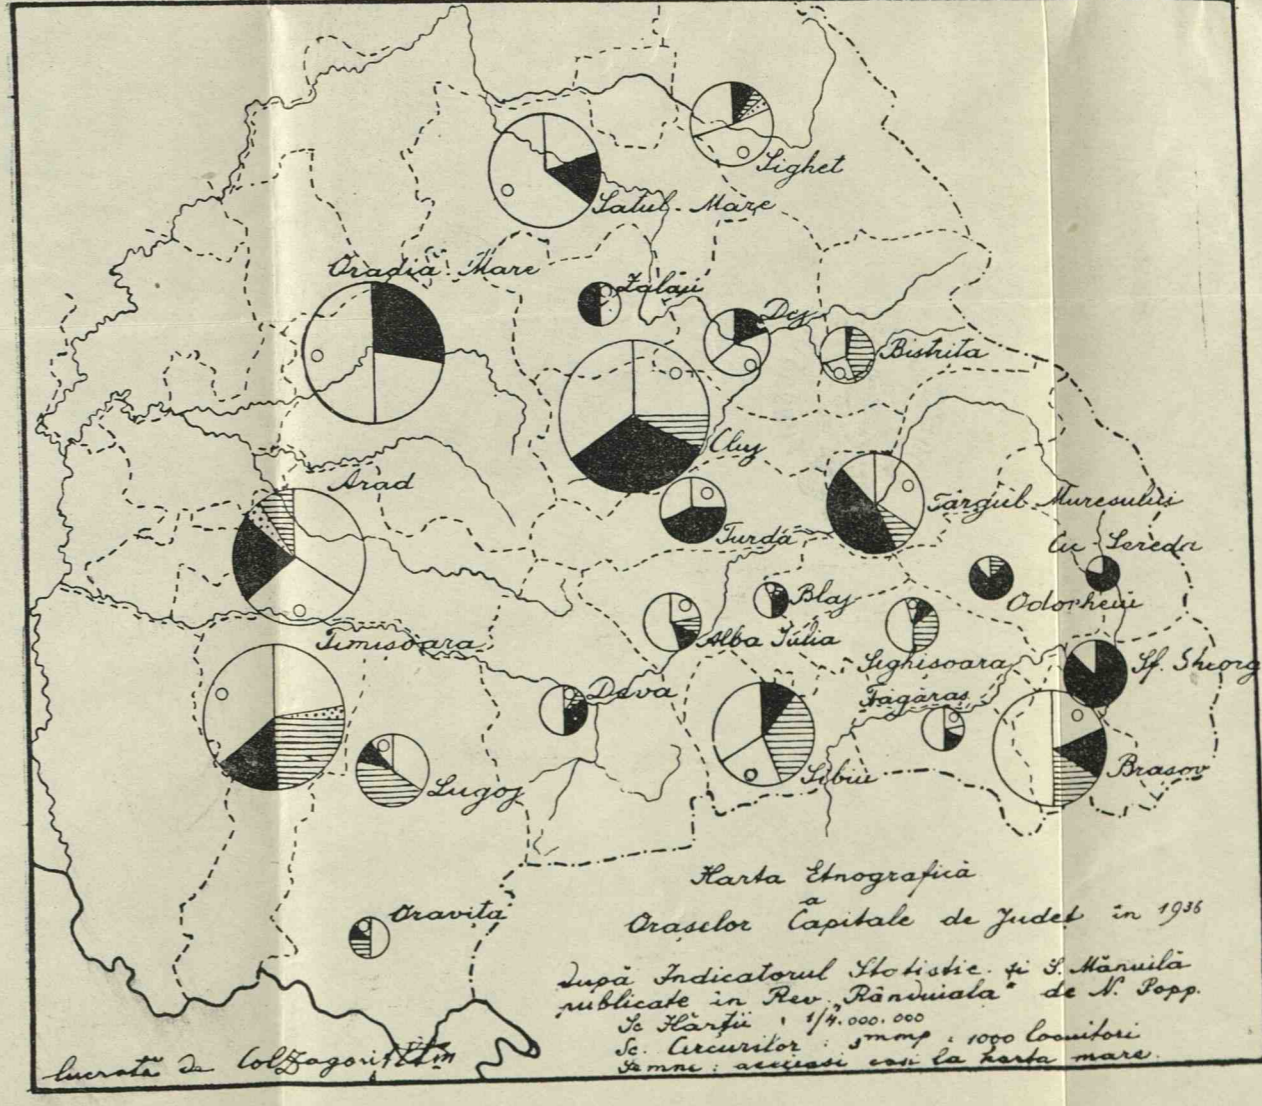 Sighet
Satul-Mare
Oradia Mare
Zalău
Dej
Bistrita
Cluj
Arad
Târgul-Muresului
Turda
Ciu-Sereda
Odorheiu
Blaj
Alba Iulia
Sighisoara
Timisoara
Sf. Gheorg
Deva
Făgăraș
Lugoj
Sibiu
Brasov
Oravița
Harta Etnografică
a
Orașelor Capitale de Județ în 1936
după Indicatorul Statistic și S. Mănuilă
publicate în Rev. „Rânduiala" de N. Popp.
Sc Hărții : 1/4.000.000
Sc. Cercurilor : 5mmp : 1000 locuitori
Semne : aceleasi casi la harta mare.
lucrată de Col Zagoritz